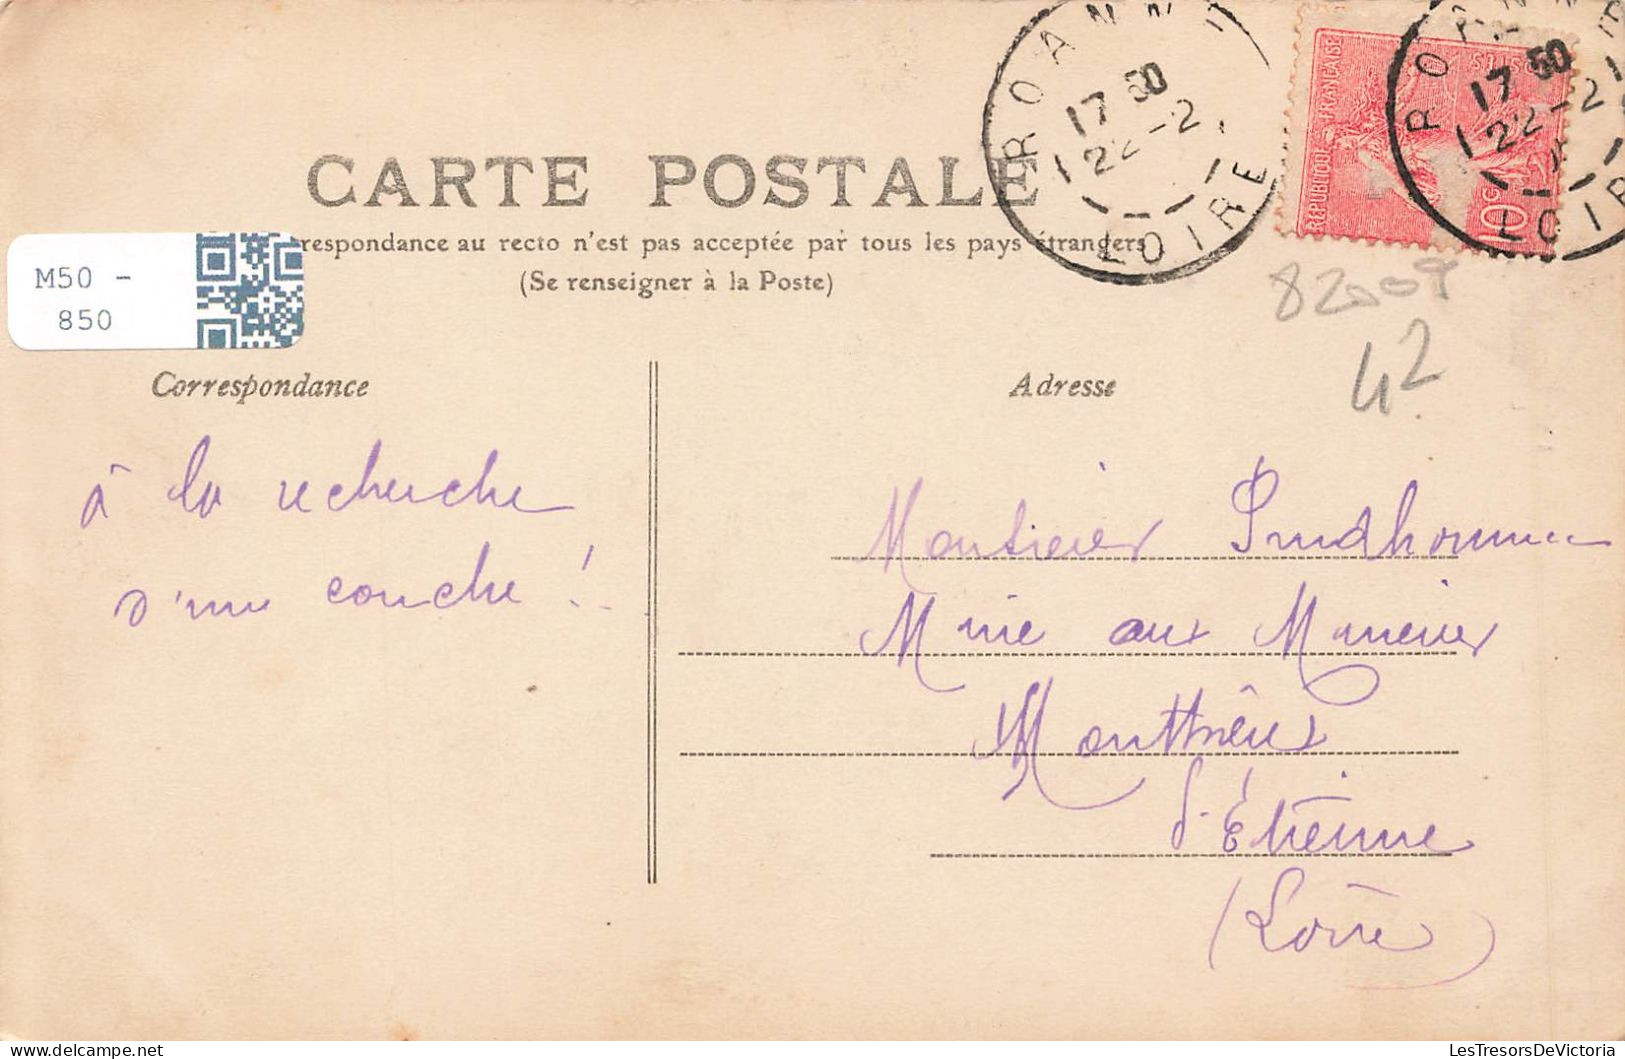 CARTE POSTALE
respondance au recto n'est pas acceptée par tous les pays étrangers
(Se renseigner à la Poste)
M50 -
850
ROANNE
17 50
22-2
LOIRE
RÉPUBLIQUE FRANÇAISE
POSTES
10c
ROANNE
17 50
22-2
LOIRE
82007
42
Correspondance
à la recherche
d'une couche !..
Adresse
Monsieur Prudhomme
Mine aux
St. Étienne
(Loire)
LesTresorsDeVictoria